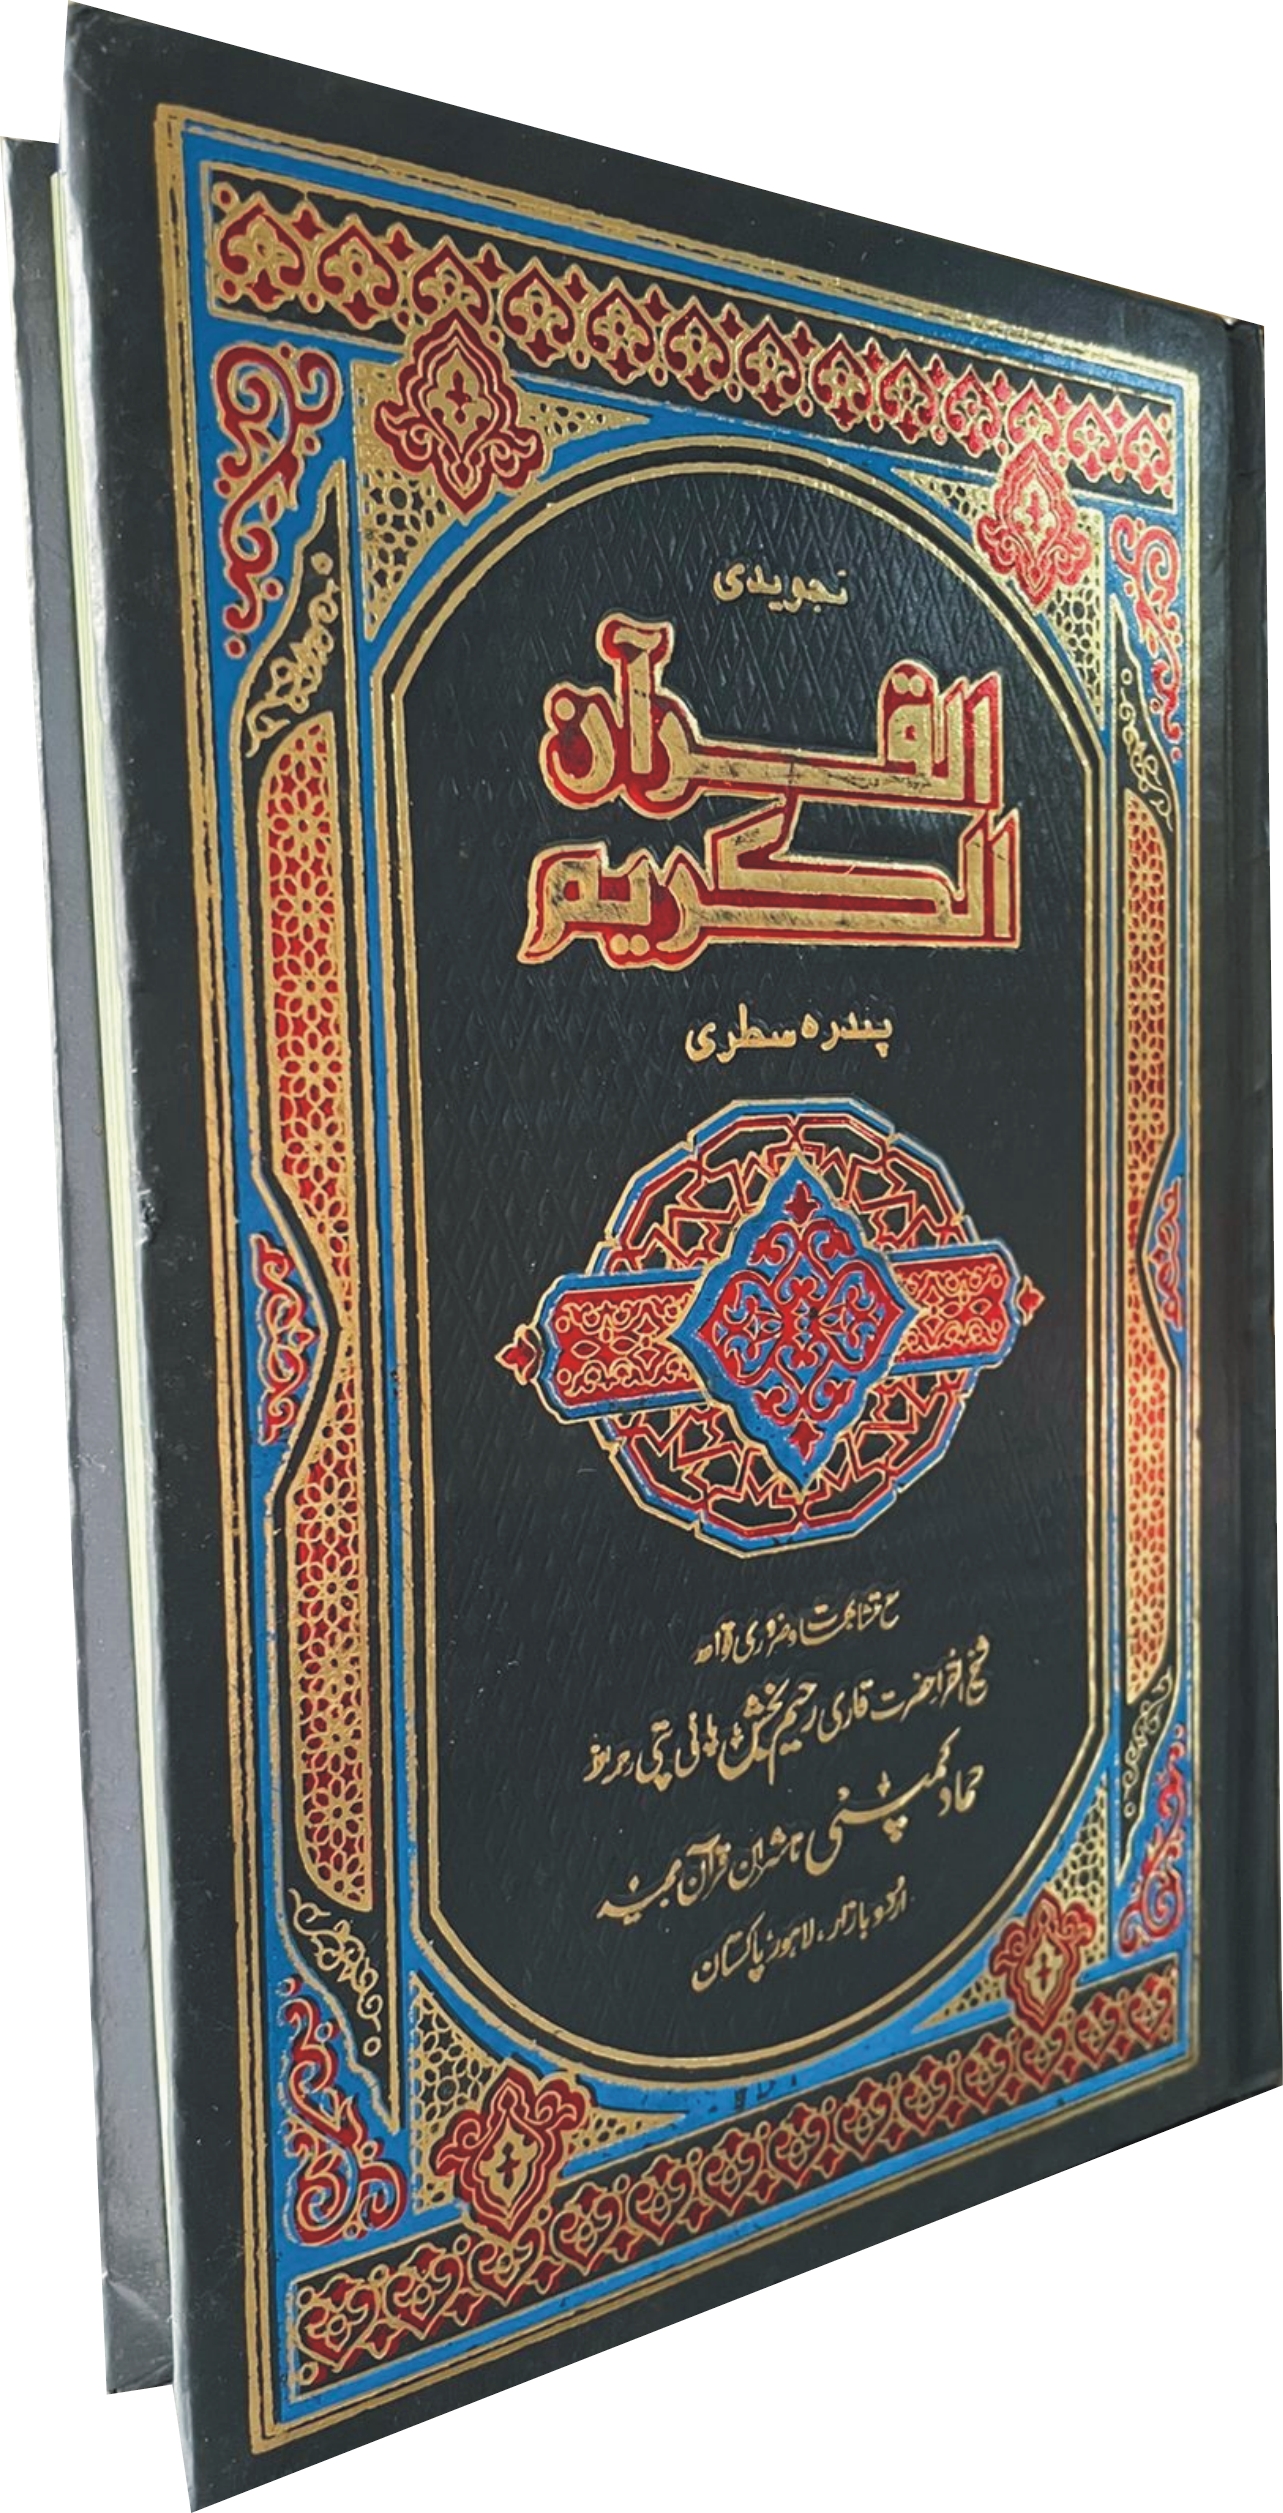 تجویدی
القرآن
الكريم
پندرہ سطری
مع متشابہات و ضروری قواعد
شیخ القراء حضرت قاری رحیم بخش پانی پتی رحمہ اللہ
حماد کمپنی ناشران قرآن مجید
اردو بازار، لاہور پاکستان